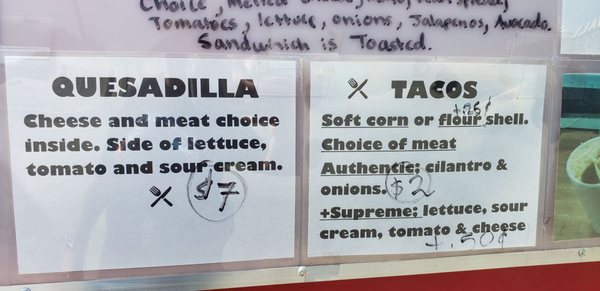 Choice, Melted
Tomatoes, lettuce, onions, Jalapenos, Avocado.
Sandwhich is Toasted.
QUESADILLA
Cheese and meat choice
inside. Side of lettuce,
tomato and sour cream.
$7
TACOS
+.25¢
Soft corn or flour shell.
Choice of meat
Authentic: cilantro &
onions. $2
+Supreme: lettuce, sour
cream, tomato & cheese
+.50¢